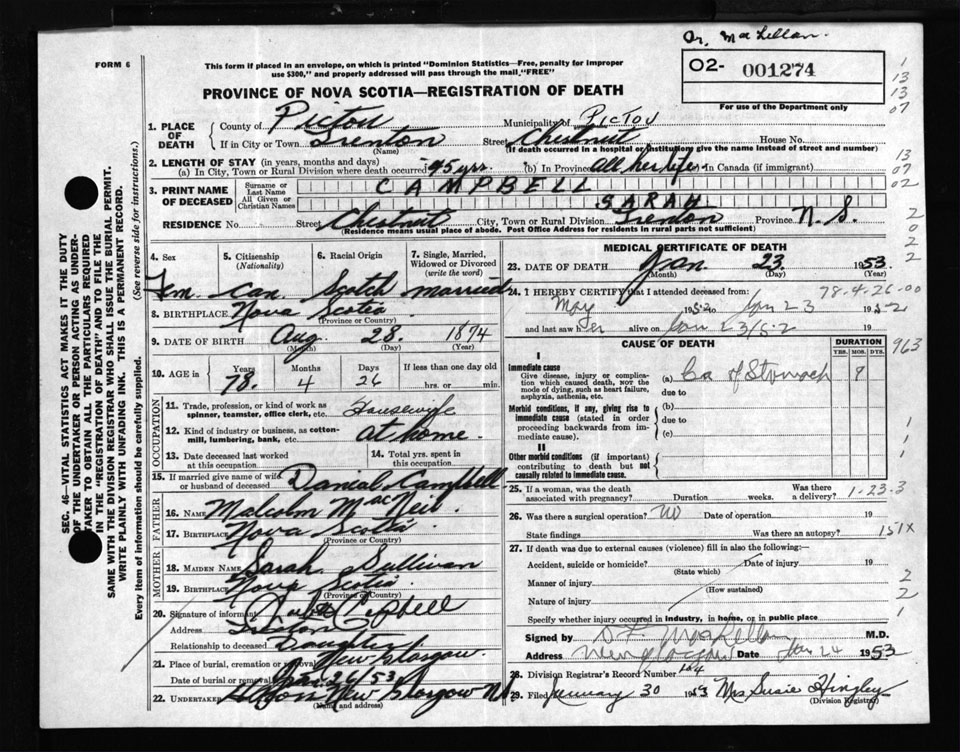 Dr. MacLellan.
FORM 6
This form if placed in an envelope, on which is printed "Dominion Statistics—Free, penalty for improper
use $300," and properly addressed will pass through the mail "FREE"
O2- 001274
For use of the Department only
PROVINCE OF NOVA SCOTIA—REGISTRATION OF DEATH
1. PLACE OF DEATH County of Pictou Municipality of PICTOU
If in City or Town Trenton (Name) Street Chestnut House No.
(If death occurred in a hospital or institution give the name instead of street and number)
2. LENGTH OF STAY (in years, months and days)
(a) In City, Town or Rural Division where death occurred 45 yrs. (b) In Province All her life (c) In Canada (if immigrant)
3. PRINT NAME OF DECEASED Surname or Last Name CAMPBELL
All Given or Christian Names SARAH
RESIDENCE No. Street Chestnut City, Town or Rural Division Trenton Province N. S.
(Residence means usual place of abode. Post Office Address for residents in rural parts not sufficient)
4. Sex 5. Citizenship (Nationality) 6. Racial Origin 7. Single, Married, Widowed or Divorced (write the word)
Fem. Can. Scotch married
8. BIRTHPLACE Nova Scotia
(Province or Country)
9. DATE OF BIRTH Aug. 28. 1874
(Month) (Day) (Year)
10. AGE in Years Months Days If less than one day old
78. 4 26 hrs. or min.
OCCUPATION
11. Trade, profession or kind of work as spinner, teamster, office clerk, etc. Housewife
12. Kind of industry or business, as cotton-mill, lumbering, bank, etc. at home.
13. Date deceased last worked at this occupation 14. Total yrs. spent in this occupation
15. If married give name of wife or husband of deceased Danial Campbell
FATHER
16. NAME Malcolm MacNeil
17. BIRTHPLACE Nova Scotia
(Province or Country)
MOTHER
18. MAIDEN NAME Sarah Sullivan
19. BIRTHPLACE Nova Scotia
(Province or Country)
20. Signature of informant
Address Trenton
Relationship to deceased Daughter
21. Place of burial, cremation or removal New Glasgow.
Date of burial or removal Jan. 26/53
22. UNDERTAKER New Glasgow NS
(Name and address)
MEDICAL CERTIFICATE OF DEATH
23. DATE OF DEATH Jan. 23 1953.
(Month) (Day) (Year)
78-4-26-00
24. I HEREBY CERTIFY that I attended deceased from:
May 1952 to Jan 23 1952
and last saw her alive on Jan 23/52 19
CAUSE OF DEATH DURATION
YRS. MOS. DYS.
I
Immediate cause
Give disease, injury or complication which caused death, not the mode of dying, such as heart failure, asphyxia, asthenia, etc.
(a) Ca of Stomach 8
due to
Morbid conditions, if any, giving rise to immediate cause (stated in order proceeding backwards from immediate cause).
(b)
due to
(c)
II
Other morbid conditions (if important) contributing to death but not causally related to immediate cause.
25. If a woman, was the death associated with pregnancy? Duration weeks. Was there a delivery? 1-23-3
26. Was there a surgical operation? No Date of operation 19
State findings Was there an autopsy? 151X
27. If death was due to external causes (violence) fill in also the following:—
Accident, suicide or homicide? Date of injury 19
(State which)
Manner of injury
(How sustained)
Nature of injury
Specify whether injury occurred in Industry, in home, or in public place
Signed by MacLellan M.D.
Address New Glasgow Date Jan 24 1953
28. Division Registrar's Record Number 164
29. Filed January 30 1953 Mrs Susie Hingley
(Division Registrar)
SEC. 46—VITAL STATISTICS ACT MAKES IT THE DUTY
OF THE UNDERTAKER OR PERSON ACTING AS UNDER-
TAKER TO OBTAIN ALL THE PARTICULARS REQUIRED
IN THE "REGISTRATION OF DEATH" AND TO FILE THE
SAME WITH THE DIVISION REGISTRAR WHO SHALL ISSUE THE BURIAL PERMIT.
WRITE PLAINLY WITH UNFADING INK. THIS IS A PERMANENT RECORD.
Every item of information should be carefully supplied. (See reverse side for instructions.)
1
13
13
07
13
07
02
2
0
2
2
963
1
1
1
2
2
1